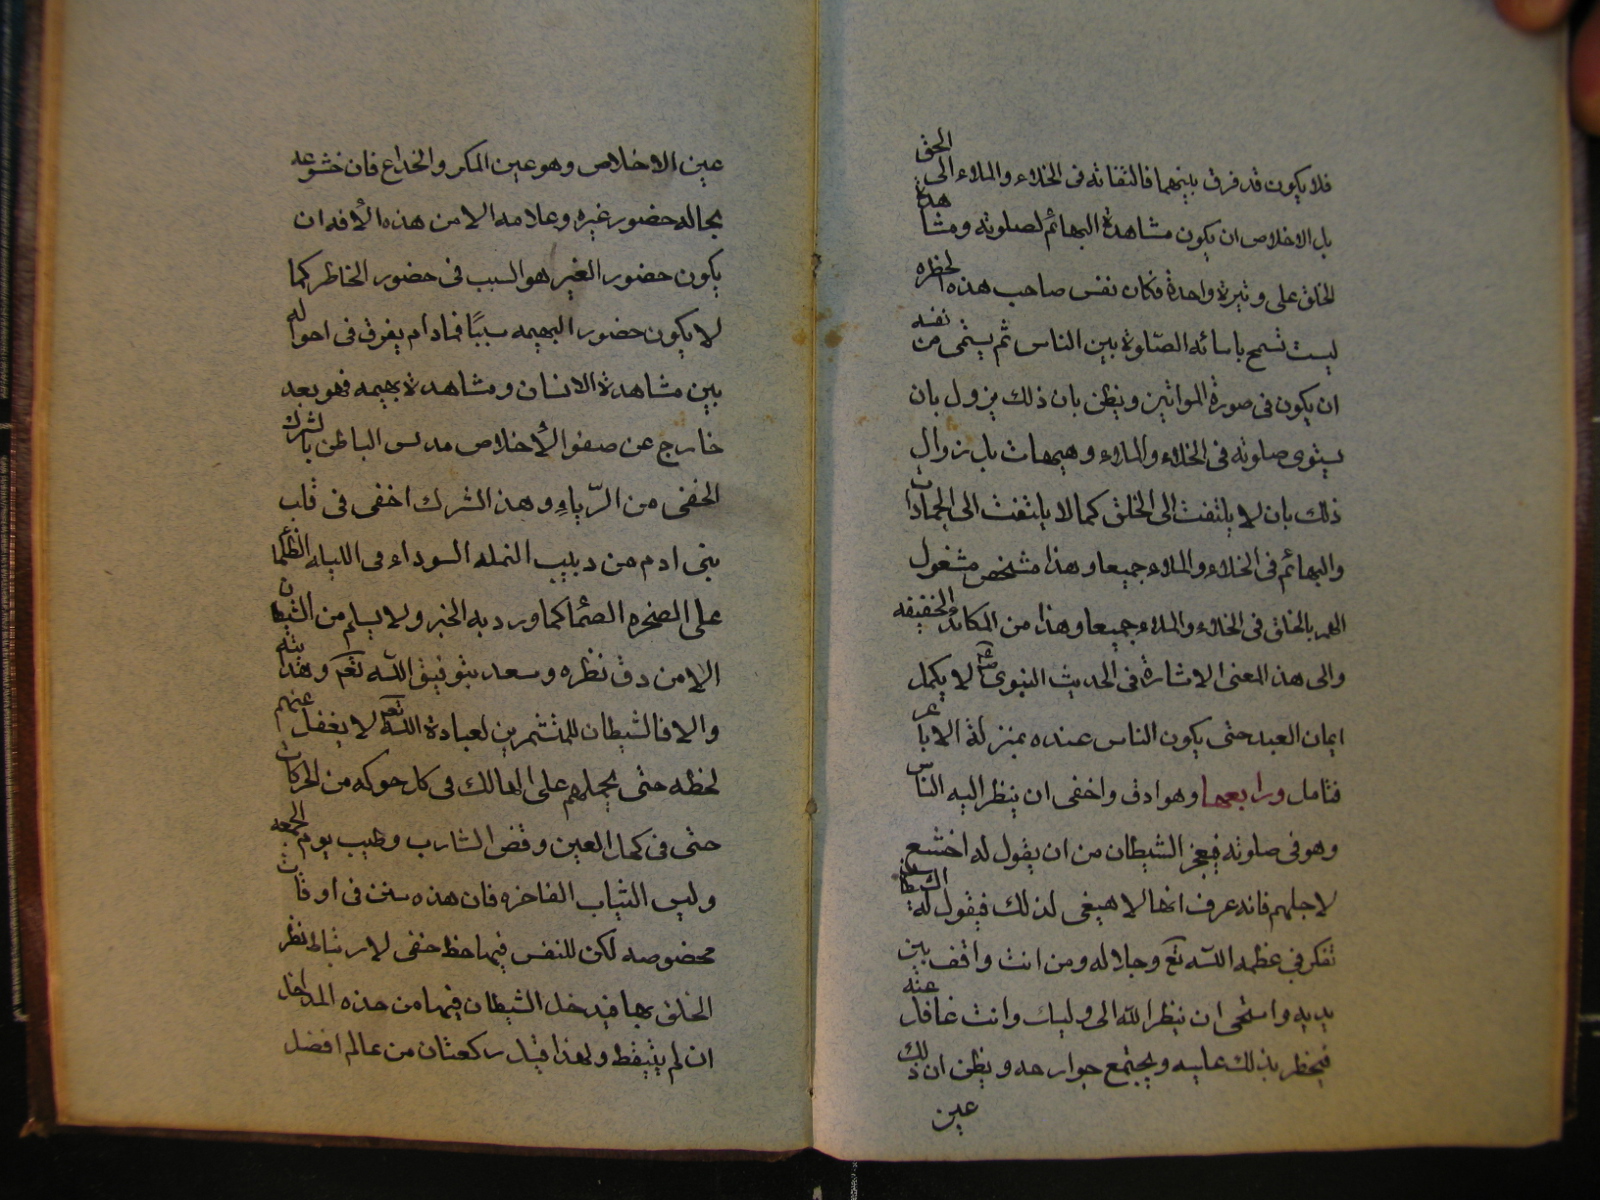 فلا يكون قد فرق بينهما فالتفاته فى الخلاء والملاء الى الحق
بل الاخلاص ان يكون مشاهدة البهائم لصلوته ومشاهدة
الخلق على وتيرة واحدة فكان نفس صاحب هذه الخطره
ليست تسمح باسائه الصّلوة بين الناس ثم يستحى من نفسه
ان يكون فى صورة المرائين ويظن بان ذلك يزول بان
يستوى صلوته فى الخلاء والملاء وهيهات بل زوال
ذلك بان لا يلتفت الى الخلق كما لا يلتفت الى الجمادات
والبهائم فى الخلاء والملاء جميعا وهذا شخص مشغول
الهم بالخلق فى الخلاء والملاء جميعا وهذا من المكائد الخفيفه
والى هذ المعنى الاشارة فى الحديث النبوى صلعم لا يكمل
ايمان العبد حتى يكون الناس عنده بمنزلة الاباعر
فتامل ورابعها وهو ادق واخفى ان ينظر اليه الناس
وهو فى صلوته فيعجز الشيطان من ان يقول له اخشع
لاجلهم فانه عرف انها لا هيغى لذلك فيقول له الشيطان
تفكر فى عظمه اللّه تع وجلاله ومن انت واقف بين
يديه واستحى ان ينظر اللّه الى وليك وانت غافل عنه
فيحظر بذلك عليه ويجتمع جوارحه ويظن ان ذلك
عين
عين الاخلاص وهو عين المكر والخداع فان خشوعه
بجاله حضور غيره وعلامه الامن هذه الأفه ان
يكون حضور الغير هو السبب فى حضور الخاطر كما
لا يكون حضور البهيمه سببًا فما دام يفرق فى احواله
بين مشاهدة الانسان ومشاهدة بهيمه فهو بعد
خارج عن صفو الأخلاص مدلس الباطن بالشرك
الخفى من الرّياءِ وهذ الشرك اخفى فى قلب
بنى ادم من دبيب النمله السوداء فى الليله الظلما
على الصخره الصمّا كما ورد به الخبر ولا يسلم من الشيطان
الا من دق نظره وسعد بتوفيق اللّه تع وهدايته
والا فالشيطان للمتشمرين لعبادة اللّه تع لا يغفل عنهم
لحظه حتى يحملهم على الهالك فى كل حركه من الحركات
حتى فى كحل العين وقض الشارب وطيب يوم الجمعه
وليس الثياب الفاخره فان هذه سنن فى اوقات
مخصوصه لكن للنفس فيها حظ خفى لارتباط نظر
الخلق بها فيدخل الشيطان فيها من هذه المداخل
ان لم يتيقظ ولهذا قيل ركعتان من عالم افضل